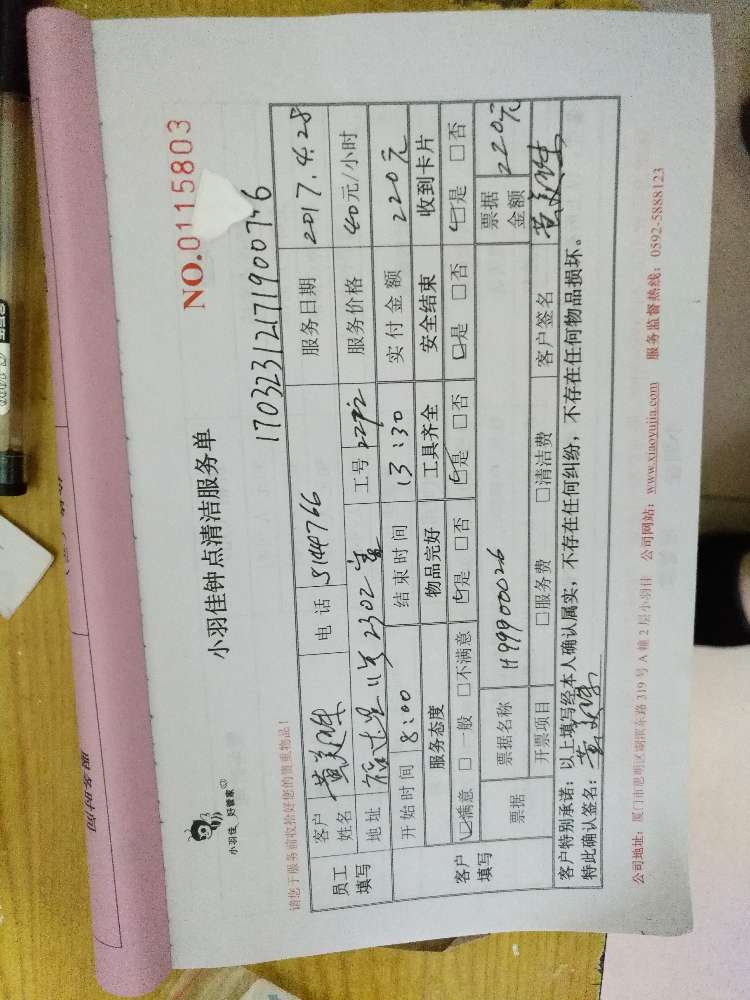 NO.0115803
小羽佳 好管家
小羽佳钟点清洁服务单
请您于服务前收拾好您的贵重物品!
员工填写 客户姓名 电话 服务日期 2017.4.28
地址 2302室 工号 服务价格 40元/小时
开始时间 8:00 结束时间 13:30 实付金额 220元
客户填写 服务态度 物品完好 工具齐全 安全结束 收到卡片
☑满意 □一般 □不满意 ☑是 □否 ☑是 □否 ☑是 □否 ☑是 □否
票据 票据名称 票据金额 220元
开票项目 □服务费 □清洁费 客户签名
客户特别承诺:以上填写经本人确认属实,不存在任何纠纷,不存在任何物品损坏。
特此确认签名:
公司地址:厦门市思明区湖滨东路319号A幢2层小羽佳 公司网站:www.xiaoyujia.com 服务监督热线:0592-5888123